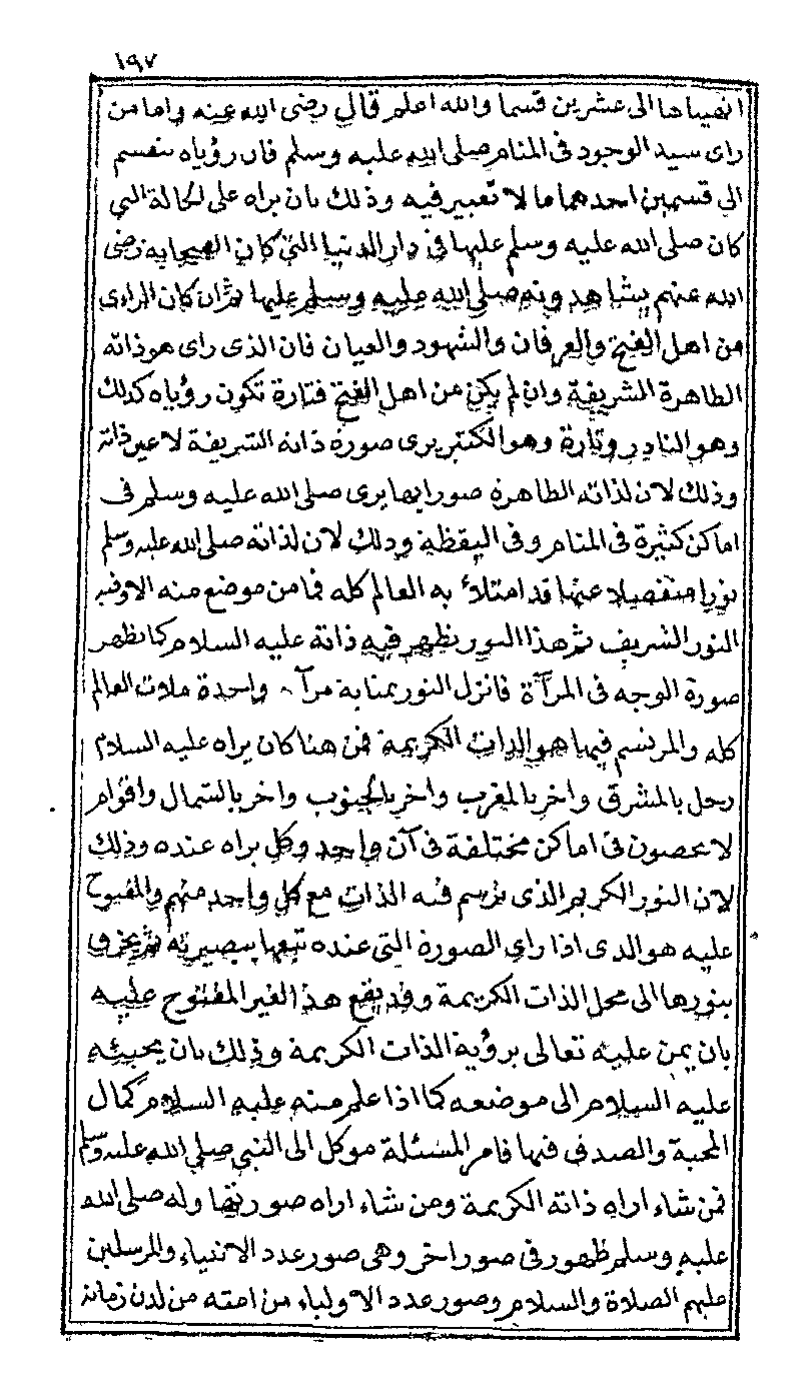 ١٩٧
انهيناها الى عشرين قسما والله اعلم قال رضى الله عنه واما من
راى سيد الوجود فى المنام صلى الله عليه وسلم فان رؤياه تنقسم
الى قسمين احدهما ما لا تعبير فيه وذلك بان يراه على الحالة التى
كان صلى الله عليه وسلم عليها فى دار الدنيا التى كان الصحابة رضى
الله عنهم يشاهدونه صلى الله عليه وسلم عليها ثم ان كان الراى
من اهل الفتح والعرفان والشهود والعيان فان الذى راى هو ذاته
الطاهرة الشريفة وان لم يكن من اهل الفتح فتارة تكون رؤياه كذلك
وهو النادر وتارة وهو الكثير يرى صورة ذاته الشريفة لا عين ذاته
وذلك لان لذاته الطاهرة صور ابها يرى صلى الله عليه وسلم فى
اماكن كثيرة فى المنام وفى اليقظة وذلك لان لذاته صلى الله عليه وسلم
نورا منفصلا عنها قد امتلأ به العالم كله فما من موضع منه الا وفيه
النور الشريف ثم هذا النور يظهر فيه ذاته عليه السلام كما تظهر
صورة الوجه فى المرآة فانزل النور بمثابة مرآة واحدة ملات العالم
كله والمرتسم فيها هو الذات الكريمة فمن هنا كان يراه عليه السلام
رجل بالمشرق واخر بالمغرب واخر بالجنوب واخر بالشمال واقوام
لا يحصون فى اماكن مختلفة فى آن واحد وكل يراه عنده وذلك
لان النور الكريم الذى ترتسم فيه الذات مع كل واحد منهم والمفتوح
عليه هو الذى اذا راى الصورة التى عنده تبعها ببصيرته ثم يخرق
بنورها الى محل الذات الكريمة وقد يقع هذا لغير المفتوح عليه
بان يمن عليه تعالى برؤية الذات الكريمة وذلك بان يجيئه
عليه السلام الى موضعه كما اذا علم منه عليه السلام كمال
المحبة والصدق فيها فامر المسئلة موكل الى النبى صلى الله عليه وسلم
فمن شاء اراه ذاته الكريمة ومن شاء اراه صورتها وله صلى الله
عليه وسلم ظهور فى صور اخر وهى صور عدد الانبياء والمرسلين
عليهم الصلاة والسلام وصور عدد الاولياء من امته من لدن زمانه